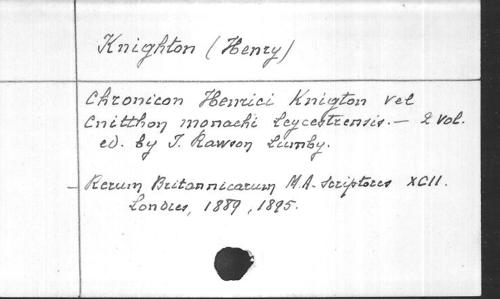 Knighton (Henry)
Chronicon Henrici Knigton vel
Cnitthon monachi Leycestrensis. — 2 vol.
ed. by J. Rawson Lumby.
Rerum Britannicarum M.A. Scriptores XCII.
Londres, 1889, 1895.